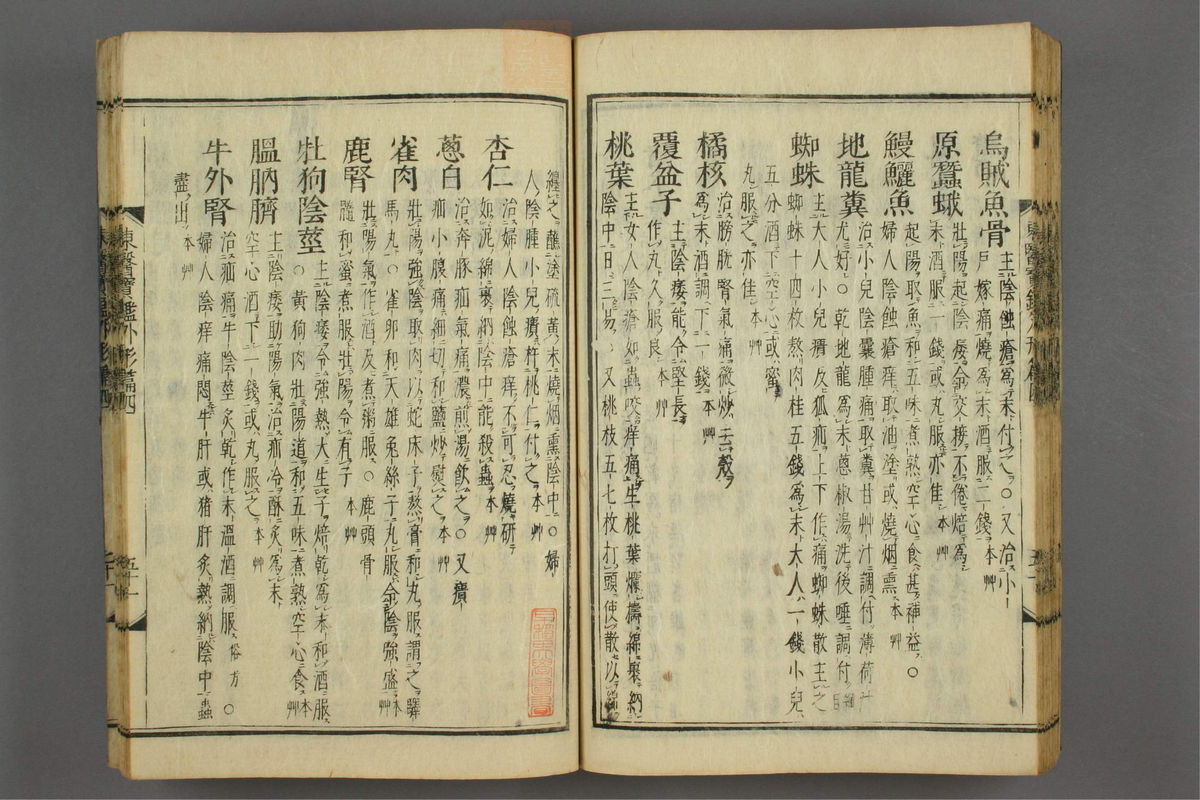 烏賊魚骨 主陰蝕瘡爲末付之○又治小
戶嫁痛燒爲末酒服二錢 本艸
原蠶蛾 壯陽起陰痿令交接不倦焙爲
末酒服一錢或丸服亦佳 本艸
鰻鱺魚 起陽取魚和五味煮熟空心食甚神益○
婦人陰蝕瘡痒取油塗或燒烟熏 本艸
地龍糞 治小兒陰囊腫痛取糞甘艸汁調付薄荷汁
尤好○乾地龍爲末葱椒湯洗後唾調付
蜘蛛 主大人小兒㿗及狐疝上下作痛蜘蛛散主之
蜘蛛十四枚熬肉桂五錢爲末大人一錢小兒
五分酒下空心或蜜
丸服之亦佳 本艸
橘核 治膀胱腎氣痛微炒去殼
爲末酒調下一錢 本艸
覆盆子 主陰痿能令堅長
作丸久服良 本艸
桃葉 主女人陰瘡如蟲咬痒痛生桃葉爛擣綿裹納
陰中日三易○又桃枝五七枚打頭使散以綿
纏之蘸塗硫黃末燒烟熏陰中○婦
人陰腫小兒㿗杵桃仁付之 本艸
杏仁 治婦人陰蝕瘡痒不可忍燒研
如泥綿裹納陰中能殺蟲 本艸
葱白 治奔豚疝氣痛濃煎湯飲之○又㿗
疝小腹痛細切和鹽炒熨之 本艸
雀肉 壯陽強陰取肉以蛇床子熬膏和丸服謂之驛
馬丸○雀卵和天雄兔絲子丸服令陰強盛 本艸
鹿腎 壯陽氣作酒及煮粥服○鹿頭骨
髓和蜜煮服壯陽令有子 本艸
牡狗陰莖 主陰痿令強熱大生子焙乾爲末和酒服
○黃狗肉壯陽道和五味煮熟空心食 本艸
膃肭臍 主陰痿助陽氣治疝冷酥炙爲末
空心酒下一錢或丸服之 本艸
牛外腎 治疝痛牛陰莖炙乾作末溫酒調服 俗方 ○
婦人陰痒痛悶牛肝或猪肝炙熱納陰中蟲
盡出 本艸
東醫寶鑑外形篇四